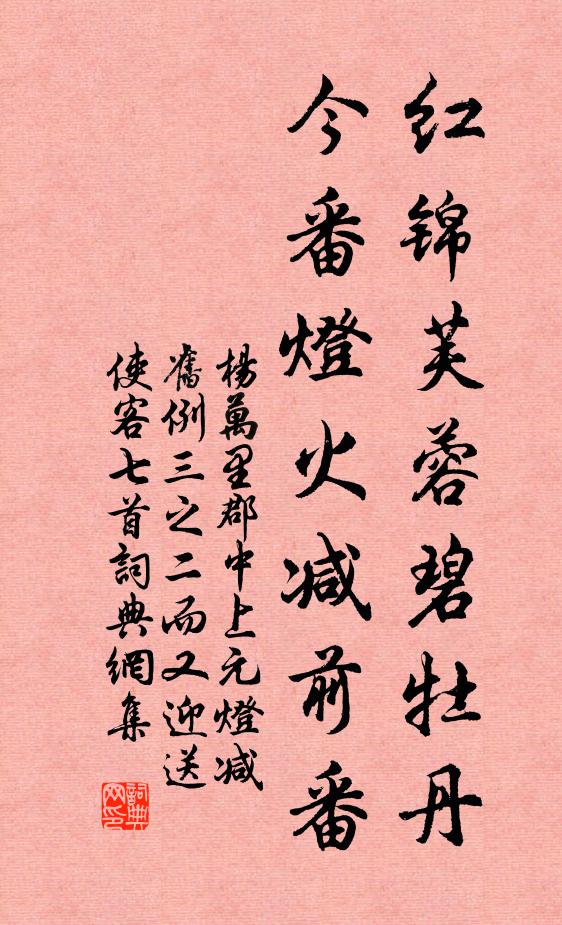 红锦芙蓉碧牡丹
今番燈火减前番
楊萬里郡中上元燈减
舊例三之二而又迎送
使客七首詞典網集
詞典网印